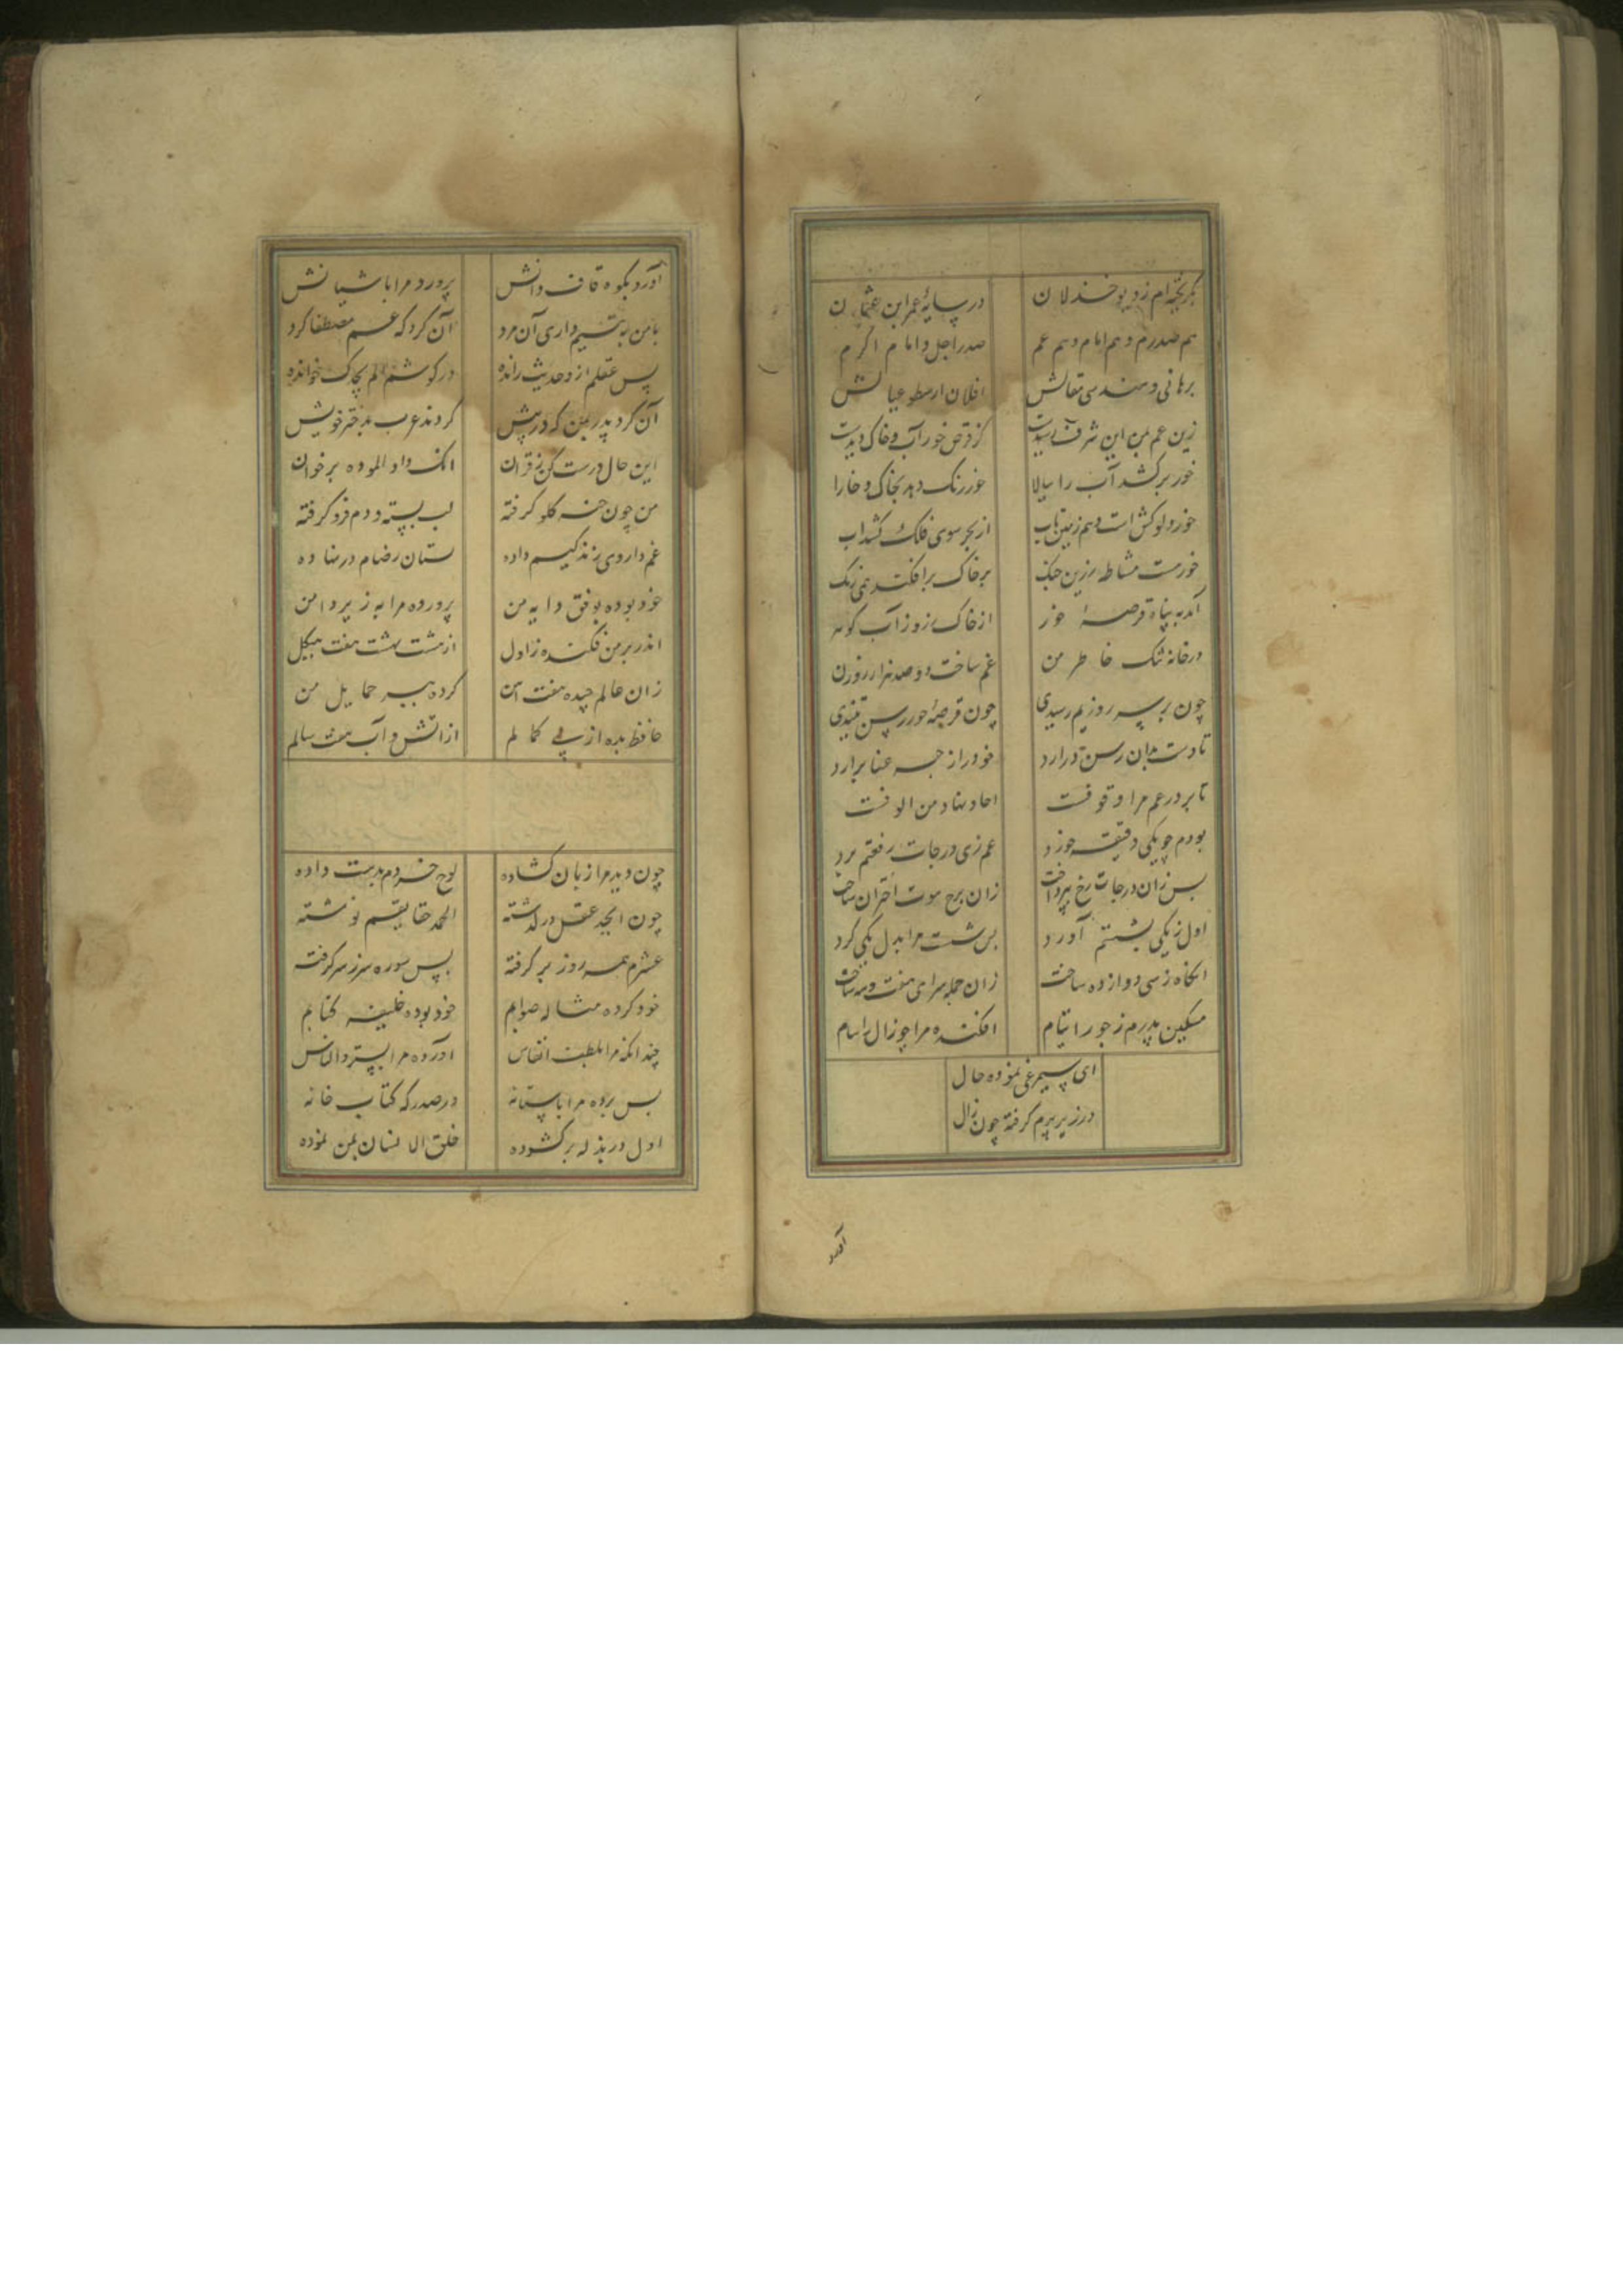 بگریخته ام ز دیو خذلان در سایهٔ عمر ابن عثمان
هم صدرم و هم امام و هم عم صدر اجل و امام اکرم
برهانی و هندسی مقالش افلان ارسطو عیالش
زین عم بمن این شرف رسیدست کز قرص خور آب و خاک دیدست
خور برکشد آب را ببالا خور رنک دهد بخاک و خارا
خور دلوکش است و هم زمین تاب از بحر سوی فلک کشد آب
خورست مشاطه رزین حنک بر خاک برافکند همی رنک
آمد به پناه قرصهٔ خور از خاک زور آب کوثر
در خانه تنک خاطر من غم ساخت دو صد هزار روزن
چون بر سر روزیم رسیدی چون قرصهٔ خور رسن تنیدی
تا دست بدان رسن درارد خود را ز چه عنا برارد
تا بر در عم مرا وقوفست احاد نهاد من الوفست
بودم چو یکی دقیقه خرد عم زی درجات رفعتم برد
بس زان درجات رخ بپرداخت زان برج سوت اختران ساخت
اول ز یکی بشستم آورد بس شست مرا بدل یکی کرد
انکاه ز سی دوازده ساخت زان جمله سرای هفت و نه ساخت
مسکین پدرم ز جور ایام افکنده مرا چو زال را سام
ای سیمرغی نموده حال
در زیر پرم کرفته چون زال
آورد
آورد بکوه قاف دانش پرورد مرا باشیانش
با من به یتیم داری آن مرد آن کرد که عم مصطفا کرد
پس عقلم ازو حدیث رانده در کوشم الم یجدک خوانده
آن کرد پدر بمن که در پیش کردند عرب بدختر خویش
این حال درست کن ز قران انک واد الموده برخوان
من چون خسه کلو کرفته لب بسته و دم فرو کرفته
عم داروی زندکیم داده ستان رضام در نهاده
خود بوده بوفق دایه من پرورده مرا به زیر دامن
اندر بر من فکنده ز اول از هشت بهشت هفت هیکل
زان عالم چیده هفت ان کرده بسر حمایل من
حافظ بده از پی کمالم از اتش و آب هفت سالم
چون دید مرا زبان کشاده لوح خردم بدست داده
چون ابجد عقل درکذشته الحمد حقایقم نوشته
عشرم همه روز بر کرفته پس سوره سر ز سر کرفته
خود کرده مثاله صوابم خود بوده خلیفه کتابم
چندانکه مرا بلطف انفاس آورده مرا بستر والناس
بس برده مرا باستانه در صدرکه کتاب خانه
اول در بذله برکشوده خلق الانسان بمن نموده